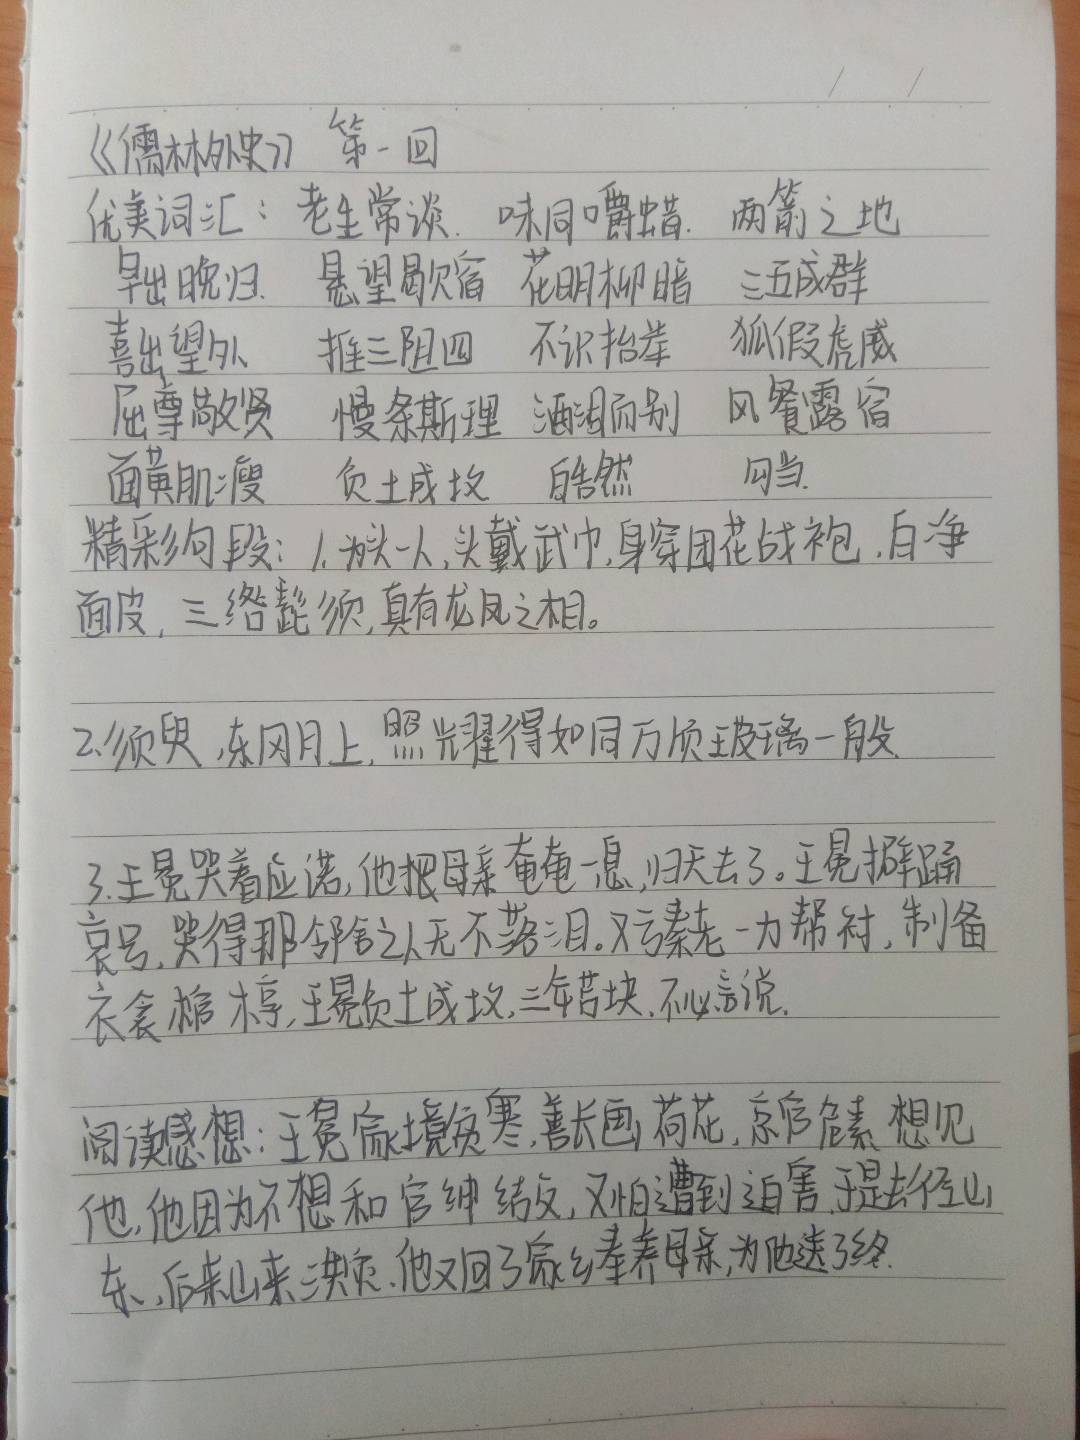 《儒林外史》 第一回
优美词汇：老生常谈. 味同嚼蜡. 两箭之地
早出晚归. 悬望歇宿 花明柳暗 三五成群
喜出望外 推三阻四 不识抬举 狐假虎威
屈尊敬贤 慢条斯理 洒泪而别 风餐露宿
面黄肌瘦 负土成坟 皓然 勾当.
精彩句段：1.为头一人,头戴武巾,身穿团花战袍,白净
面皮,三绺髭须,真有龙凤之相。
2.须臾,东冈月上,照耀得如同万顷玻璃一般.
3.王冕哭着应诺,他把母亲奄奄一息,归天去了。王冕擗踊
哀号,哭得那邻舍之人无不落泪。又亏秦老一力帮衬,制备
衣衾棺椁,王冕负土成坟,三年苫块,不必言说.
阅读感想：王冕家境贫寒,善长画荷花,京官危素想见
他,他因为不想和官绅结交,又怕遭到迫害,于是去往山
东,后来山来洪灾.他又回了家乡奉养母亲,为他送了终.